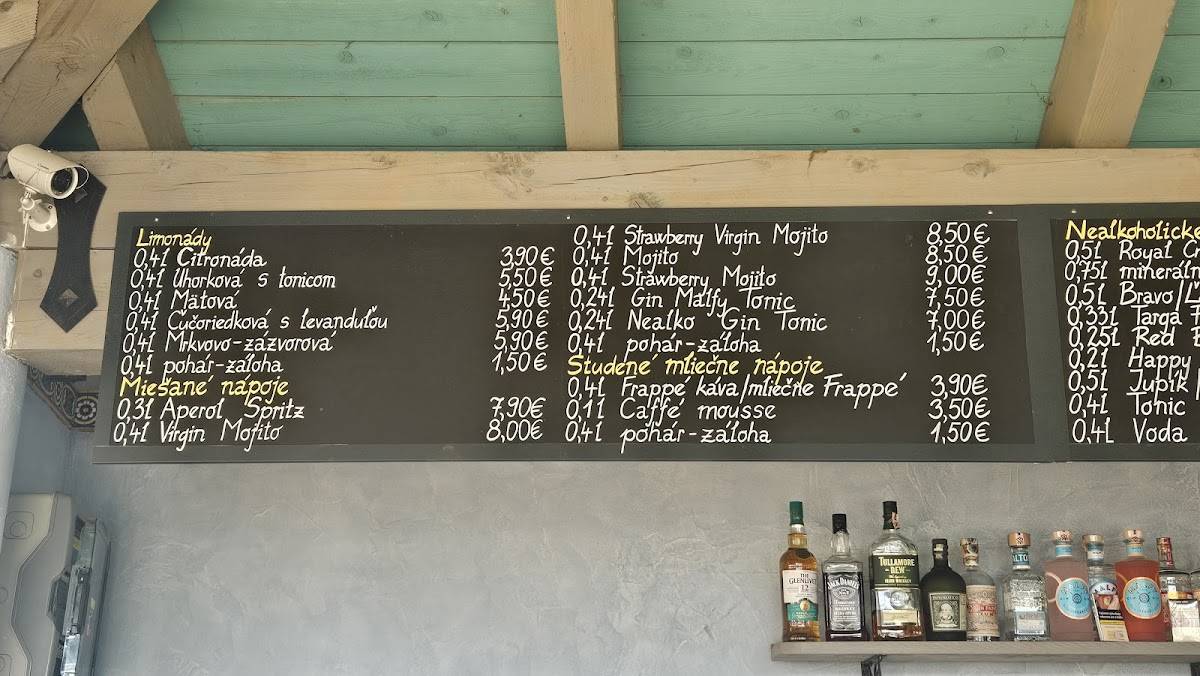 Limonády
0,4l Citronáda 3,90€
0,4l Uhorková s tonicom 5,50€
0,4l Mätová 4,50€
0,4l Čučoriedková s levanduľou 5,90€
0,4l Mrkvovo-zázvorová 5,90€
0,4l pohár-záloha 1,50€
Miešané nápoje
0,3l Aperol Spritz 7,90€
0,4l Virgin Mojito 8,00€
0,4l Strawberry Virgin Mojito 8,50€
0,4l Mojito 8,50€
0,4l Strawberry Mojito 9,00€
0,24l Gin Malfy Tonic 7,50€
0,24l Nealko Gin Tonic 7,00€
0,4l pohár-záloha 1,50€
Studené mliečne nápoje
0,4l Frappé káva/mliečne Frappé 3,90€
0,1l Caffé mousse 3,50€
0,4l pohár-záloha 1,50€
Nealkoholické
0,5l Royal
0,75l
0,5l Bravo/
0,33l Targa
0,25l Red
0,2l Happy
0,5l Jupík/
0,4l Tonic
0,4l Voda
THE GLENLIVET 12
JACK DANIEL'S
TULLAMORE DEW